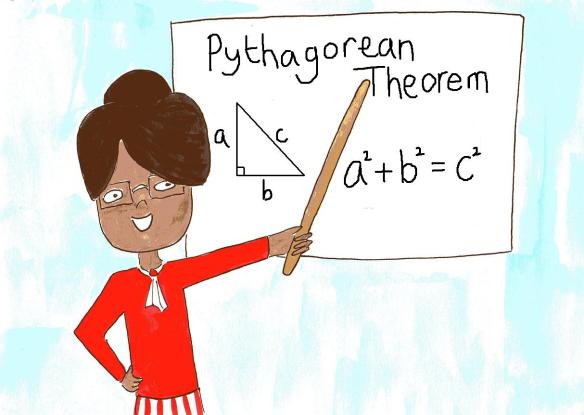 Pythagorean
Theorem
a
c
b
a² + b² = c²